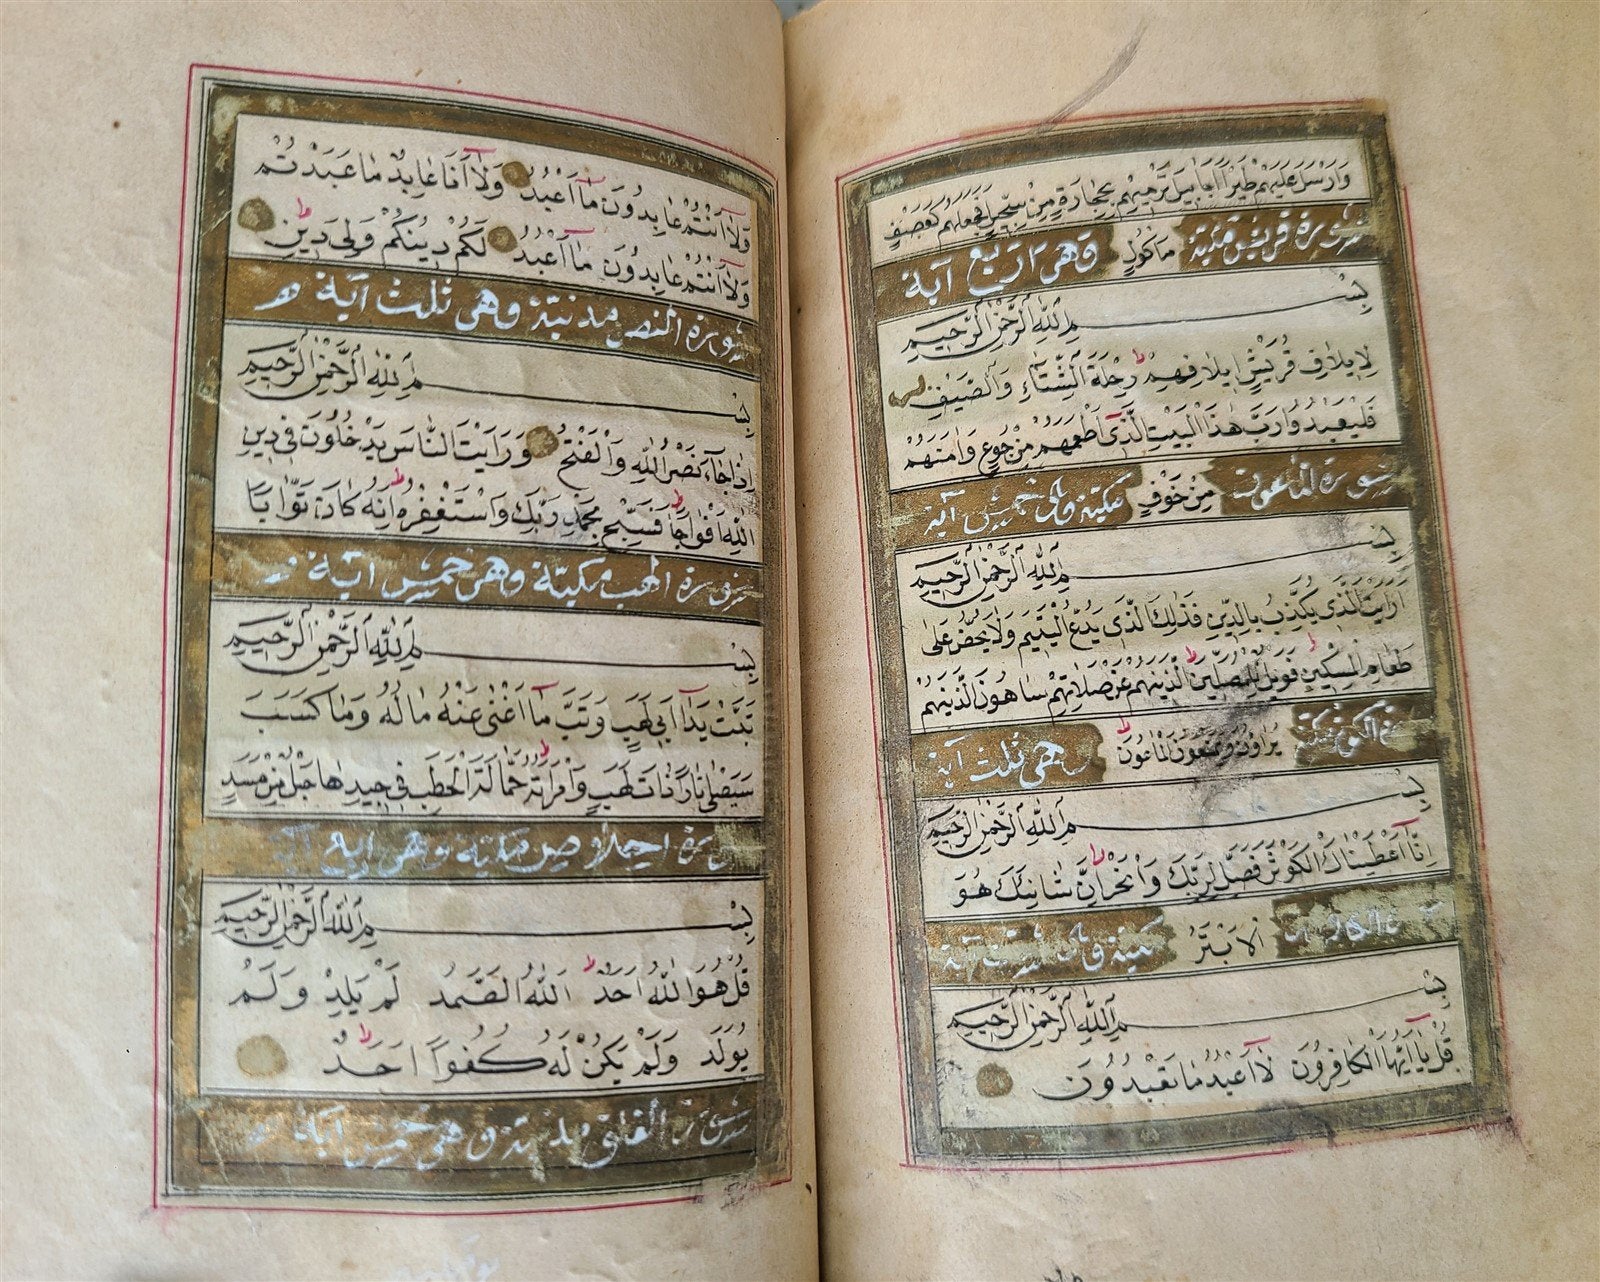 وَاَرْسَلَ عَلَيْهِمْ طَيْرًا اَبَابِيلَ تَرْمِيهِمْ بِحِجَارَةٍ مِنْ سِجِّيلٍ فَجَعَلَهُمْ كَعَصْفٍ
سورة قريش مكية مَاْكُولٍ وهى اربع آية
بِسْمِ اللهِ الرَّحْمٰنِ الرَّحِيمِ
لِاِيلَافِ قُرَيْشٍ اِيلَافِهِمْ رِحْلَةَ الشِّتَاءِ وَالصَّيْفِ
فَلْيَعْبُدُوا رَبَّ هٰذَا الْبَيْتِ الَّذِى اَطْعَمَهُمْ مِنْ جُوعٍ وَاٰمَنَهُمْ
سورة الماعون مِنْ خَوْفٍ مكية خمس آية
بِسْمِ اللهِ الرَّحْمٰنِ الرَّحِيمِ
اَرَاَيْتَ الَّذِى يُكَذِّبُ بِالدِّينِ فَذٰلِكَ الَّذِى يَدُعُّ الْيَتِيمَ وَلَا يَحُضُّ عَلٰى
طَعَامِ الْمِسْكِينِ فَوَيْلٌ لِلْمُصَلِّينَ الَّذِينَ هُمْ عَنْ صَلَاتِهِمْ سَاهُونَ الَّذِينَ هُمْ
الكوثر مكية يُرَاؤُنَ وَيَمْنَعُونَ الْمَاعُونَ وهى ثلث آية
بِسْمِ اللهِ الرَّحْمٰنِ الرَّحِيمِ
اِنَّا اَعْطَيْنَاكَ الْكَوْثَرَ فَصَلِّ لِرَبِّكَ وَانْحَرْ اِنَّ شَانِئَكَ هُوَ
الْاَبْتَرُ مكية
بِسْمِ اللهِ الرَّحْمٰنِ الرَّحِيمِ
قُلْ يَا اَيُّهَا الْكَافِرُونَ لَا اَعْبُدُ مَا تَعْبُدُونَ
وَلَا اَنْتُمْ عَابِدُونَ مَا اَعْبُدُ وَلَا اَنَا عَابِدٌ مَا عَبَدْتُمْ
وَلَا اَنْتُمْ عَابِدُونَ مَا اَعْبُدُ لَكُمْ دِينُكُمْ وَلِىَ دِينِ
سورة النصر مدنية وهى ثلث آية
بِسْمِ اللهِ الرَّحْمٰنِ الرَّحِيمِ
اِذَا جَاءَ نَصْرُ اللهِ وَالْفَتْحُ وَرَاَيْتَ النَّاسَ يَدْخُلُونَ فِى دِينِ
اللهِ اَفْوَاجًا فَسَبِّحْ بِحَمْدِ رَبِّكَ وَاسْتَغْفِرْهُ اِنَّهُ كَانَ تَوَّابًا
سورة لهب مكية وهى خمس آية
بِسْمِ اللهِ الرَّحْمٰنِ الرَّحِيمِ
تَبَّتْ يَدَا اَبِى لَهَبٍ وَتَبَّ مَا اَغْنٰى عَنْهُ مَالُهُ وَمَا كَسَبَ
سَيَصْلٰى نَارًا ذَاتَ لَهَبٍ وَامْرَاَتُهُ حَمَّالَةَ الْحَطَبِ فِى جِيدِهَا حَبْلٌ مِنْ مَسَدٍ
سورة اخلاص مكية وهى اربع آية
بِسْمِ اللهِ الرَّحْمٰنِ الرَّحِيمِ
قُلْ هُوَ اللهُ اَحَدٌ اَللهُ الصَّمَدُ لَمْ يَلِدْ وَلَمْ
يُولَدْ وَلَمْ يَكُنْ لَهُ كُفُوًا اَحَدٌ
سورة الفلق مدنية وهى خمس آية